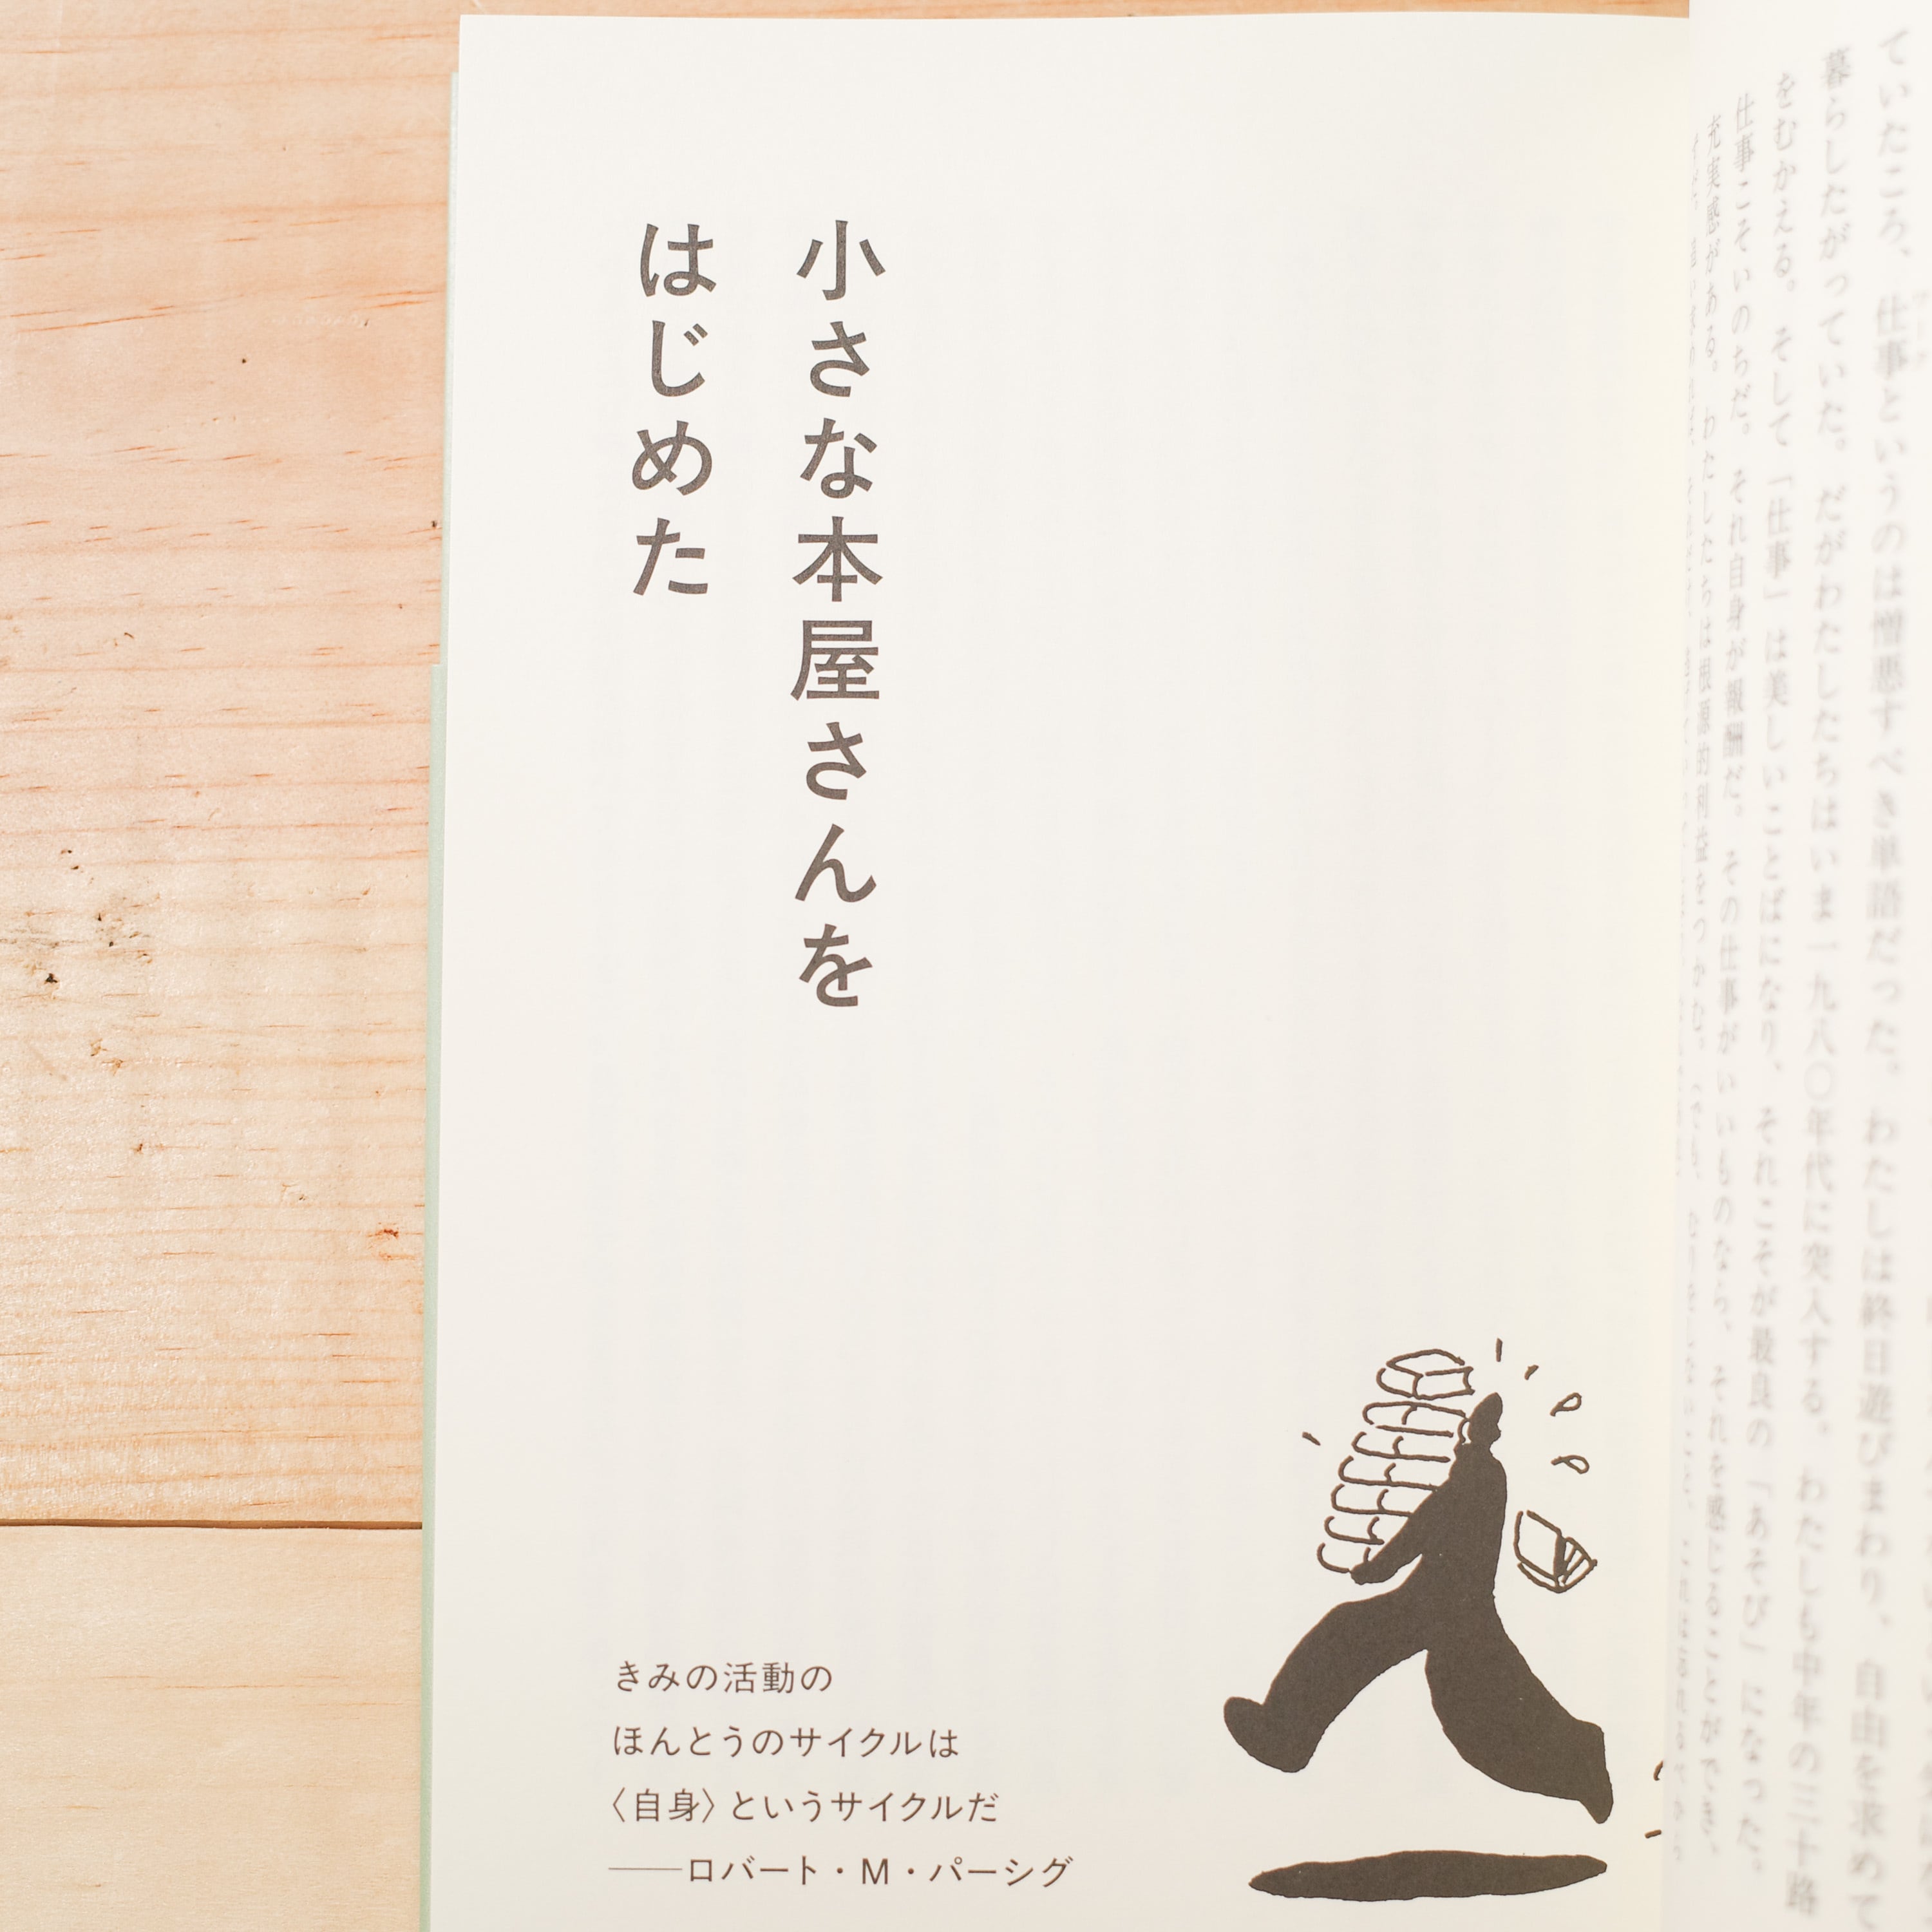 小さな本屋さんを
はじめた
きみの活動の
ほんとうのサイクルは
〈自身〉というサイクルだ
――ロバート・M・パーシグ
ていたころ、仕事というのは憎悪すべき単語だった。わたしは終日遊びまわり、自由を求めて
暮らしたがっていた。だがわたしたちはいま一九八〇年代に突入する。わたしも中年の三十路
をむかえる。そして「仕事」は美しいことばになり、それこそが最良の「あそび」になった。
仕事こそいのちだ。それ自身が報酬だ。その仕事がいいものなら、それを感じることができ、
充実感がある。わたしたちは根源的利益をつかむ。